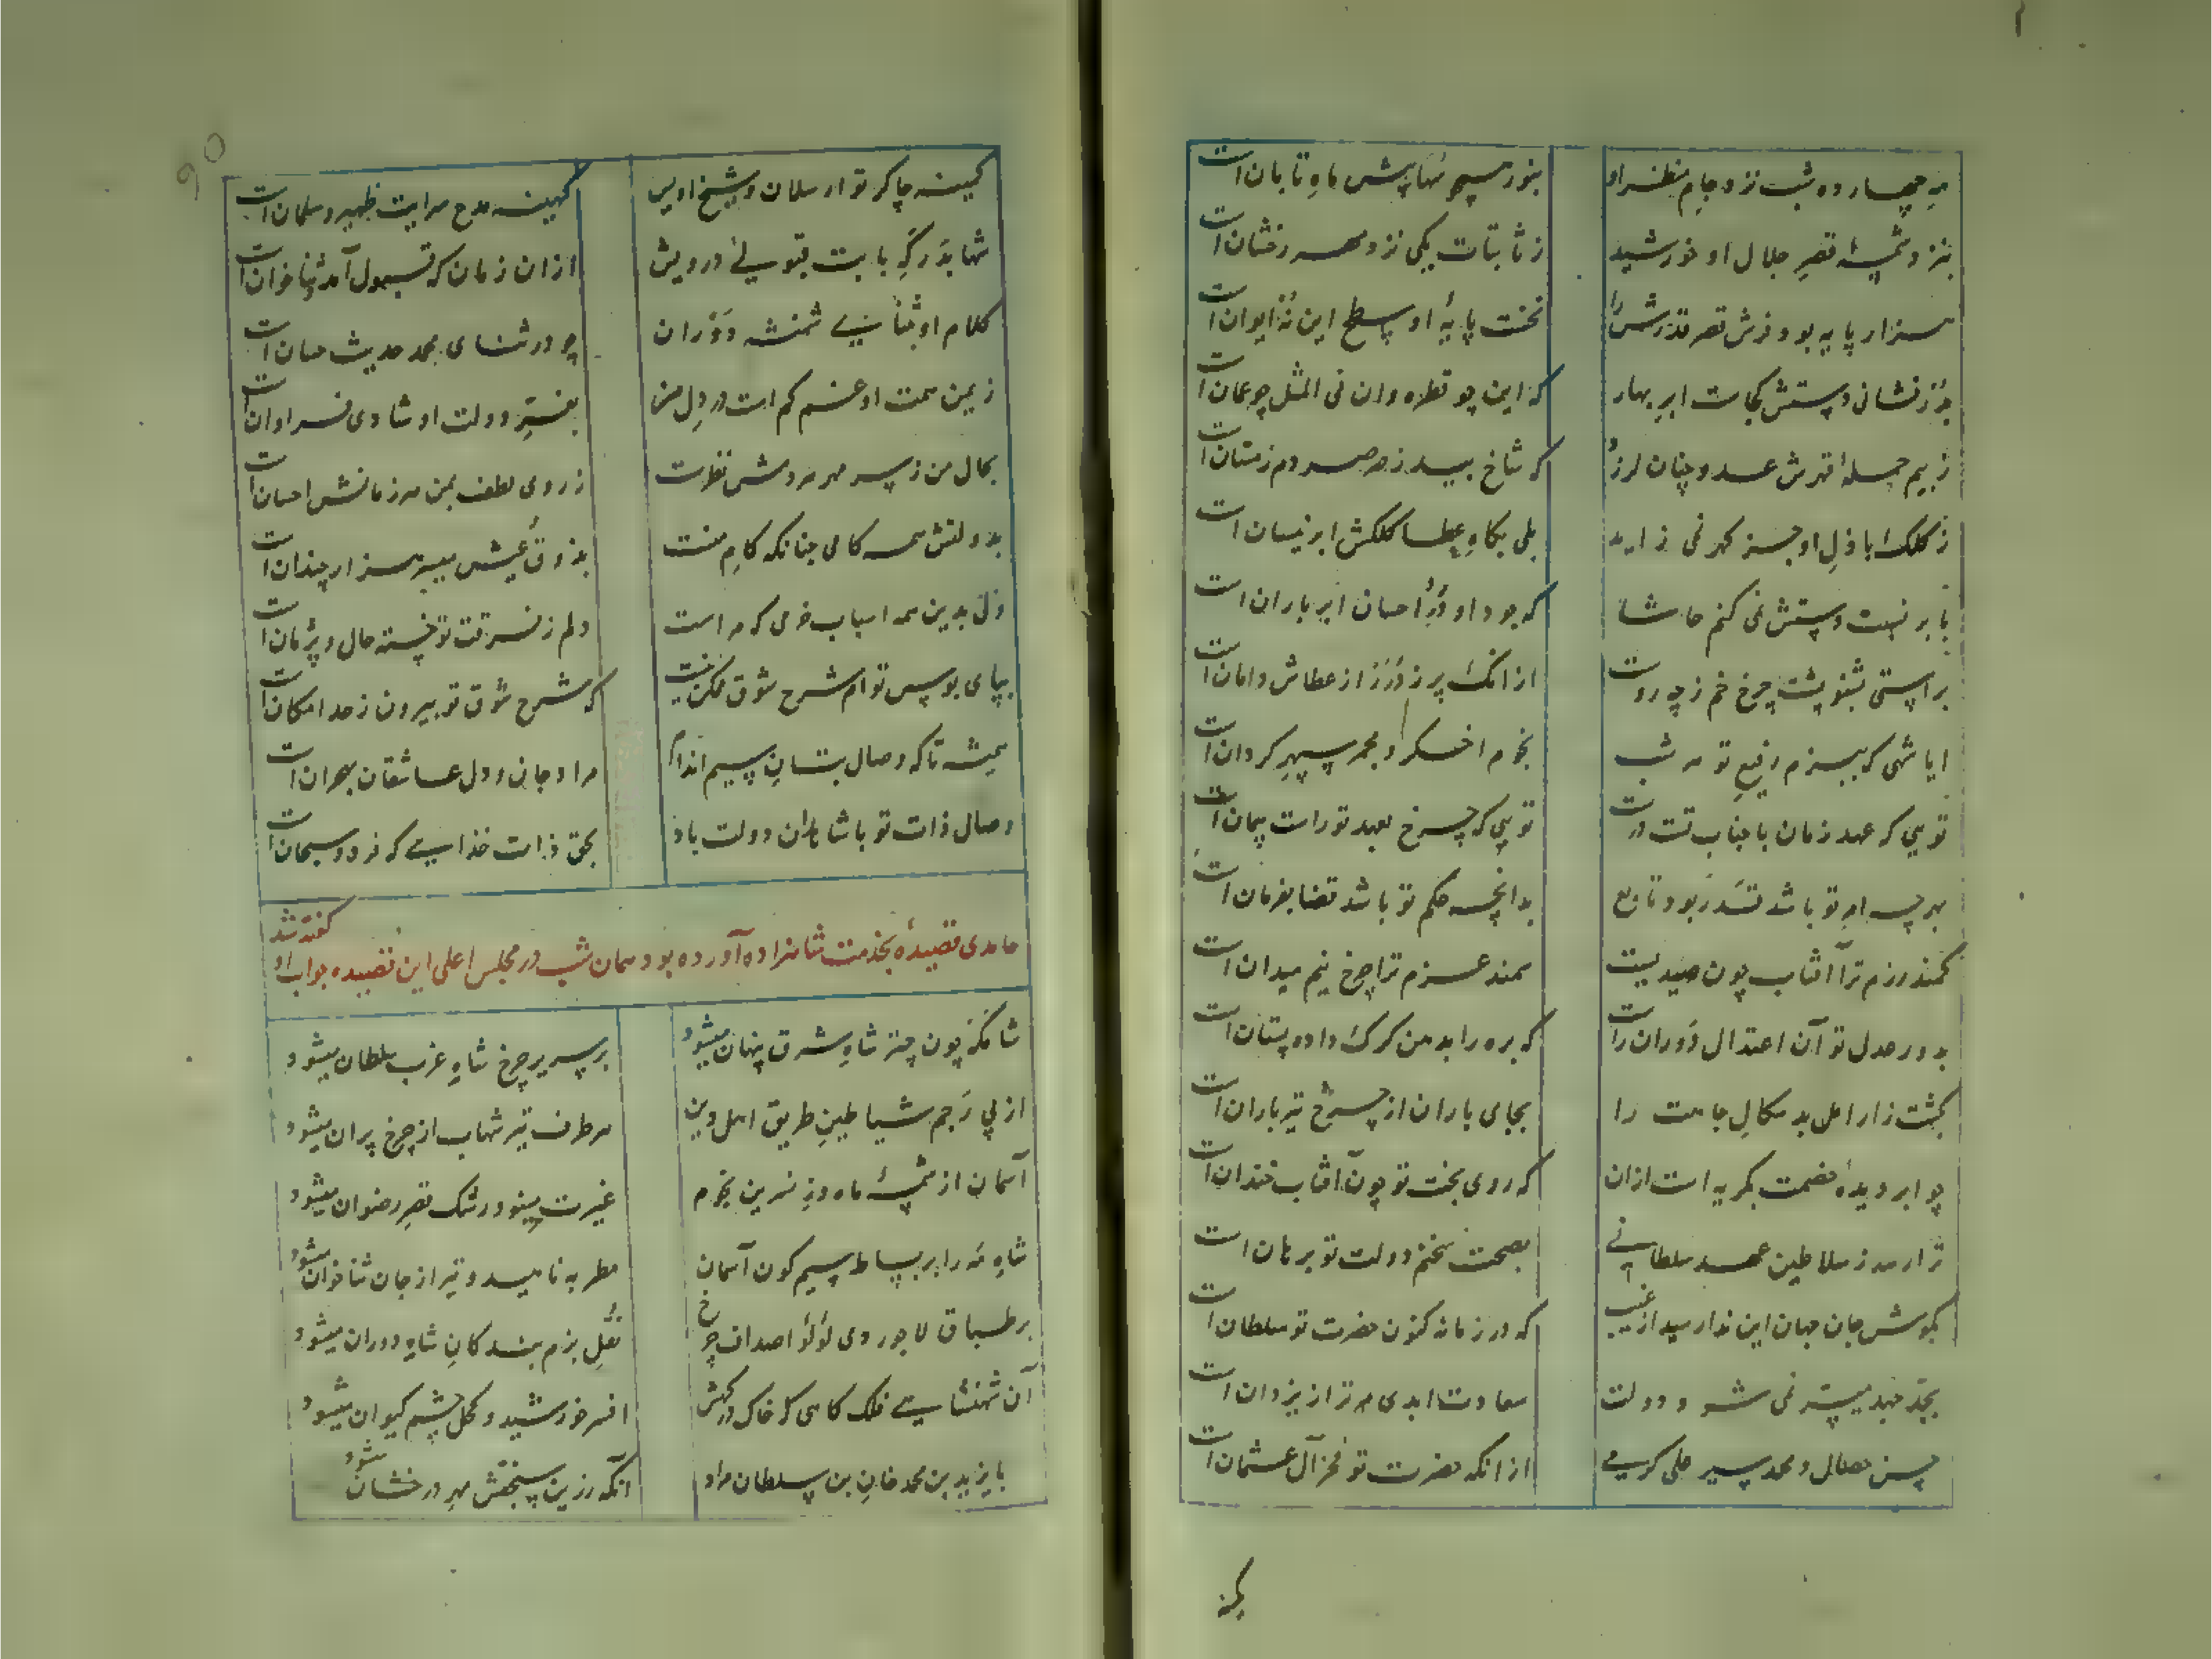 مه چهارده شب نزد جام منظر او
بنور همچو سها پیش ماه تابان است
بنزد شمسهٔ قصر جلال او خورشید
ز ثابتات یکی نزد مهر رخشان است
هزار پایه بود فرش قصر قدرش را
نخست پایهٔ او سطح این نه ایوان است
بدُرفشانی دستش کجاست ابر بهار
که این چو قطره و ان فی المثل چو عمان است
ز بیم حملهٔ قهرش عدو چنان لرزد
که شاخ بید ز صرصر دم زمستان است
ز کلک باذل او جز گهر نمی زاید
بلی بگاه عطا کلکش ابر نیسان است
بابر نسبت دستش نمی کنم حاشا
که جود او دُر احسان ابر باران است
براستی بشنو پشت چرخ خم ز چه روست
از انک پر ز دُرر از عطاش دامان است
ایا شهی که ببزم رفیع تو هر شب
نجوم اخگر و مجمر سپهر کردان است
تویی که عهد زمان با جناب تست درست
تویی که چرخ بعهد تو راست پیمان است
بهرچه امر تو باشد قدر بود تابع
بدانچه حکم تو باشد قضا بفرمان است
کمند رزم ترا آفتاب چون صیدیست
سمند عزم ترا چرخ نیم میدان است
بدور عدل تو آن اعتدال دوران راست
که بره را بدهن کرک داده پستان است
بکشت زار امل بدسکال جاهت را
بجای باران از چرخ تیر باران است
چو ابر دیدهٔ خصمت بکریه است ازان
که روی بخت تو چون آفتاب خندان است
ترا رسد ز سلاطین عهد سلطانی
بصحت سخنم دولت تو برهان است
بکوش جان جهان این ندا رسید از غیب
که در زمانه کنون حضرت تو سلطان است
بجد و جهد میسر نمی شود دولت
سعادت ابدی مر ترا ز یزدان است
حسن خصال و محمد سیر علی کرمی
از انکه حضرت تو فخر آل عثمان است
کمینه
کمینه چاکر تو ارسلان و شیخ اویس
کهینه مدح سرایت ظهیر و سلمان است
شها بدرکه بابت قبولی درویش
ازان زمان که قبول آمد ثناخوان است
کلام او بثنای شهنشه دوران
چو در ثنای محمد حدیث حسان است
زیمن همت او غم کم است در دل من
بفر دولت او شادی فراوان است
بحال من ز سر مهر هر دمش نظرست
ز روی لطف بمن هر زمانش احسان است
بدولتش همه کامی چنانکه کام منست
بذوق عیش میسر هزار چندان است
ولی بدین همه اسباب خرمی که مراست
دلم ز فرقت تو خسته حال و پژمان است
بپای بوس توام شرح شوق ممکن نیست
که شرح شوق تو بیرون ز حد امکان است
همیشه تا که وصال بتان سیم اندام
مراد جان و دل عاشقان هجران است
وصال ذات تو با شاهدان دولت باد
بحق ذات خدایی که فرد و سبحان است
حامدی قصیدهٔ بخدمت شاهزاده آورده بود همان شب در مجلس اعلی این قصیده جواب او
کفته شد
شامکه چون چتر شاه شرق پنهان میشود
بر سریر چرخ شاه غرب سلطان میشود
از پی رجم شیاطین طریق اهل دین
هر طرف تیر شهاب از چرخ پران میشود
آسمان از شمسهٔ ماه وز نسرین نجوم
غیرت مینو و رشک قصر رضوان میشود
شاه مه را بر بساط سیم کون آسمان
مطربه ناهید و تیر از جان ثناخوان میشود
بر طباق لاجوردی لؤلؤ اصداف چرخ
نقل بزم بندکان شاه دوران میشود
آن شهنشاهی فلک کاهی که خاک درکهش
افسر خورشید و کحل چشم کیوان میشود
بایزید بن محمد خان بن سلطان مراد
آنکه رزین سنجقش مهر درخشان میشود